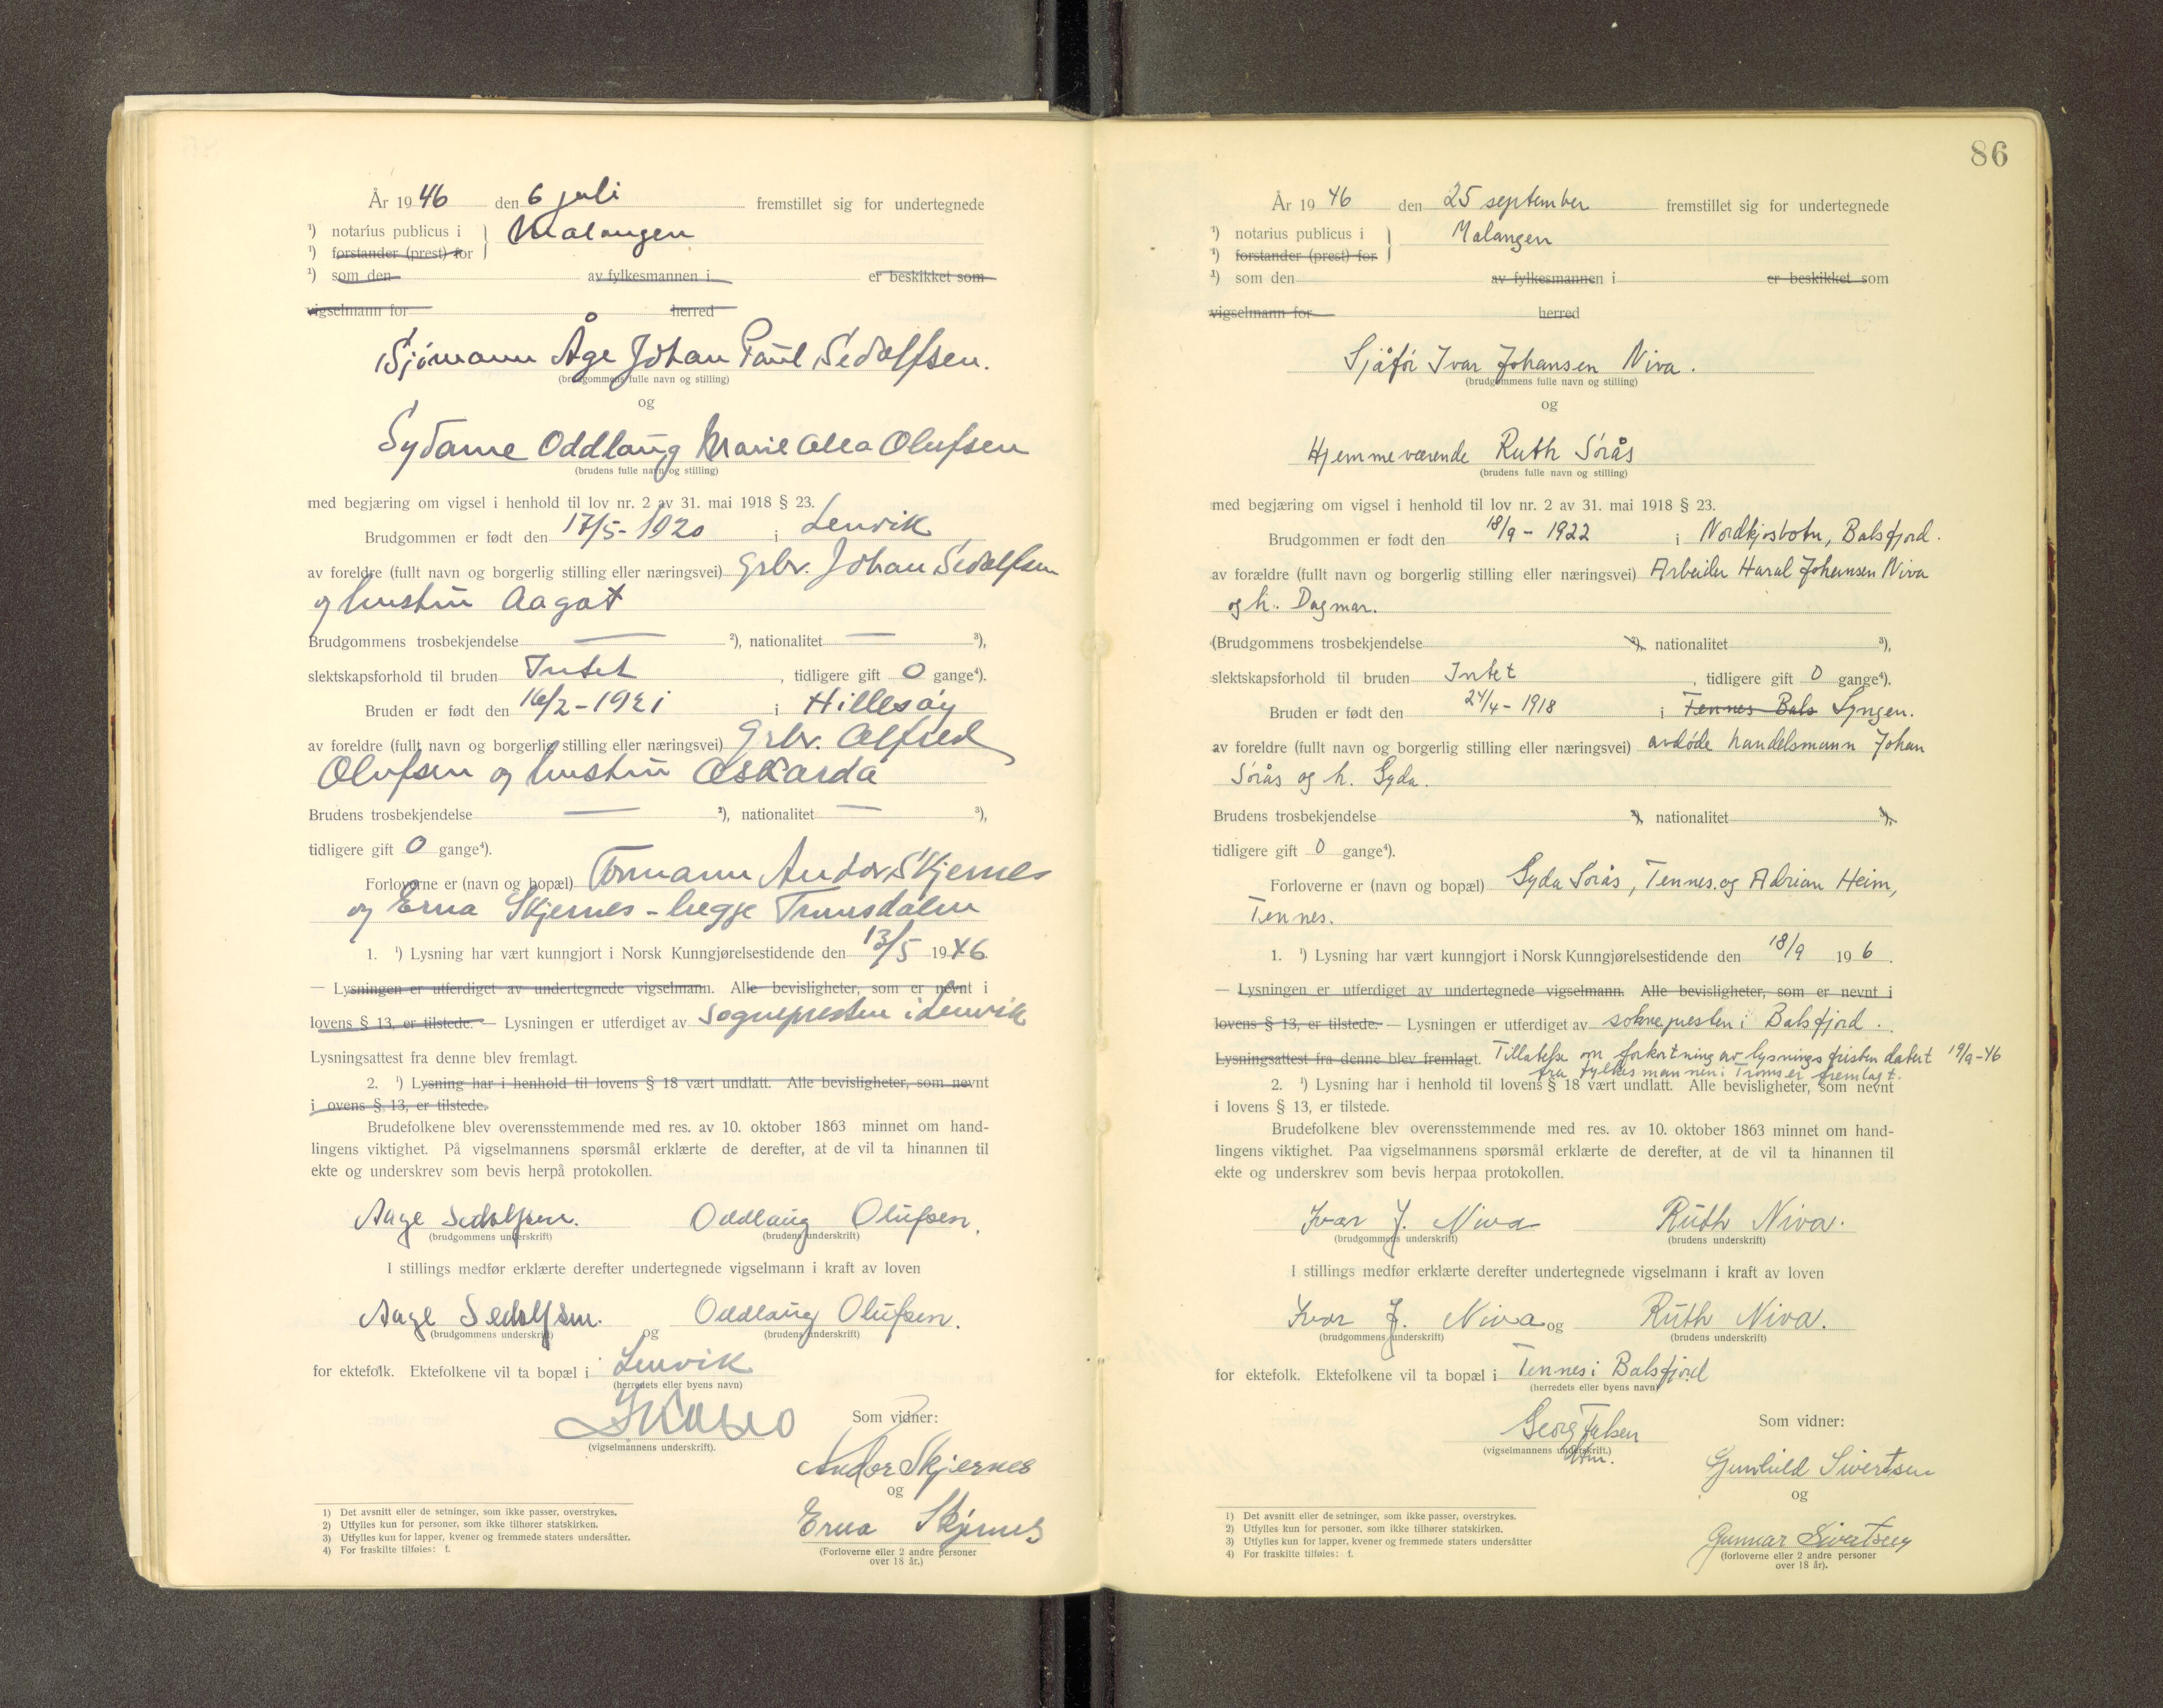 År 1946 den 6 juli fremstillet sig for undertegnede
¹) notarius publicus i } Malangen
¹) forstander (prest) for
¹) som den av fylkesmannen i er beskikket som
vigselmann for herred
Sjømann Åge Johan Paul Sedolfsen.
(brudgommens fulle navn og stilling)
og
Sydame Oddlaug Marie Alea Olufsen
(brudens fulle navn og stilling)
med begjæring om vigsel i henhold til lov nr. 2 av 31. mai 1918 § 23.
Brudgommen er født den 17/5-1920 i Lenvik
av foreldre (fullt navn og borgerlig stilling eller næringsvei) Grbr. Johan Sedolfsen
og hustru Aagot
Brudgommens trosbekjendelse — ²), nationalitet — ³),
slektskapsforhold til bruden Intet, tidligere gift 0 gange⁴).
Bruden er født den 16/2-1921 i Hillesøy
av foreldre (fullt navn og borgerlig stilling eller næringsvei) Grbr. Alfred
Olufsen og hustru Oskarda
Brudens trosbekjendelse — ²), nationalitet — ³),
tidligere gift 0 gange⁴).
Forloverne er (navn og bopæl) Formann Andor Skjernes
og Erna Skjernes - begge Tromsdalen
1. ¹) Lysning har vært kunngjort i Norsk Kunngjørelsestidende den 13/5 1946.
— Lysningen er utferdiget av undertegnede vigselmann. Alle bevisligheter, som er nevnt i
lovens § 13, er tilstede. — Lysningen er utferdiget av sognepresten i Lenvik
Lysningsattest fra denne blev fremlagt.
2. ¹) Lysning har i henhold til lovens § 18 vært undlatt. Alle bevisligheter, som nevnt
i ovens § 13, er tilstede.
Brudefolkene blev overensstemmende med res. av 10. oktober 1863 minnet om hand-
lingens viktighet. På vigselmannens spørsmål erklærte de derefter, at de vil ta hinannen til
ekte og underskrev som bevis herpå protokollen.
Aage Sedolfsen. Oddlaug Olufsen.
(brudgommens underskrift) (brudens underskrift)
I stillings medfør erklærte derefter undertegnede vigselmann i kraft av loven
Aage Sedolfsen. og Oddlaug Olufsen.
(brudgommens underskrift) (brudens underskrift)
for ektefolk. Ektefolkene vil ta bopæl i Lenvik
(herredets eller byens navn)
Som vidner:
(vigselmannens underskrift).
Andor Skjernes
og
Erna Skjernes
(Forloverne eller 2 andre personer
over 18 år.)
1) Det avsnitt eller de setninger, som ikke passer, overstrykes.
2) Utfylles kun for personer, som ikke tilhører statskirken.
3) Utfylles kun for lapper, kvener og fremmede staters undersåtter.
4) For fraskilte tilføies: f.
86
År 1946 den 25 september fremstillet sig for undertegnede
¹) notarius publicus i } Malangen
¹) forstander (prest) for
¹) som den av fylkesmannen i er beskikket som
vigselmann for herred
Sjåfør Ivar Johansen Niva.
(brudgommens fulle navn og stilling)
og
Hjemmeværende Ruth Sørås
(brudens fulle navn og stilling)
med begjæring om vigsel i henhold til lov nr. 2 av 31. mai 1918 § 23.
Brudgommen er født den 18/9 - 1922 i Nordkjosbotn, Balsfjord.
av forældre (fullt navn og borgerlig stilling eller næringsvei) Arbeider Haral Johansen Niva
og h. Dagmar.
(Brudgommens trosbekjendelse ²), nationalitet ³),
slektskapsforhold til bruden Intet, tidligere gift 0 gange⁴).
Bruden er født den 24/4 - 1918 i Tennes Bals Lyngen.
av foreldre (fullt navn og borgerlig stilling eller næringsvei) avdøde handelsmann Johan
Sørås og h. Gyda.
Brudens trosbekjendelse ²), nationalitet ³),
tidligere gift 0 gange⁴).
Forloverne er (navn og bopæl) Gyda Sørås, Tennes. og Adrian Heim,
Tennes.
1. ¹) Lysning har vært kunngjort i Norsk Kunngjørelsestidende den 18/9 196.
— Lysningen er utferdiget av undertegnede vigselmann. Alle bevisligheter, som er nevnt i
lovens § 13, er tilstede. — Lysningen er utferdiget av soknepresten i Balsfjord.
Lysningsattest fra denne blev fremlagt. Tillatelse om forkortning av lysningsfristen datert 19/9-46
fra fylkesmannen i Troms er fremlagt.
2. ¹) Lysning har i henhold til lovens § 18 vært undlatt. Alle bevisligheter, som nevnt
i lovens § 13, er tilstede.
Brudefolkene blev overensstemmende med res. av 10. oktober 1863 minnet om hand-
lingens viktighet. Paa vigselmannens spørsmål erklærte de derefter, at de vil ta hinannen til
ekte og underskrev som bevis herpaa protokollen.
Ivar J. Niva Ruth Niva.
(brudgommens underskrift) (brudens underskrift)
I stillings medfør erklærte derefter undertegnede vigselmann i kraft av loven
Ivar J. Niva og Ruth Niva.
(brudgommens underskrift) (brudens underskrift)
for ektefolk. Ektefolkene vil ta bopæl i Tennes i Balsfjord
(herredets eller byens navn)
Georg Falsen Som vidner:
(vigselmannens underskrift.)
Gunhild Sivertsen
og
Gunnar Sivertsen
(forloverne eller 2 andre personer
over 18 år).
1) Det avsnitt eller de setninger, som ikke passer, overstrykes.
2) Utfylles kun for personer, som ikke tilhører statskirken.
3) Utfylles kun for lapper, kvener og fremmede staters undersåtter
4) For fraskilte tilføies: f.